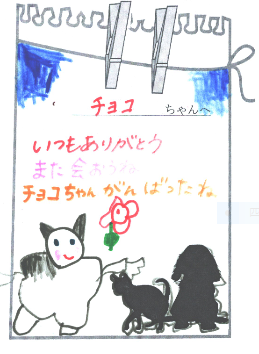 チョコ ちゃんへ
いつもありがとう
また会おうね。
チョコちゃん がんばったね